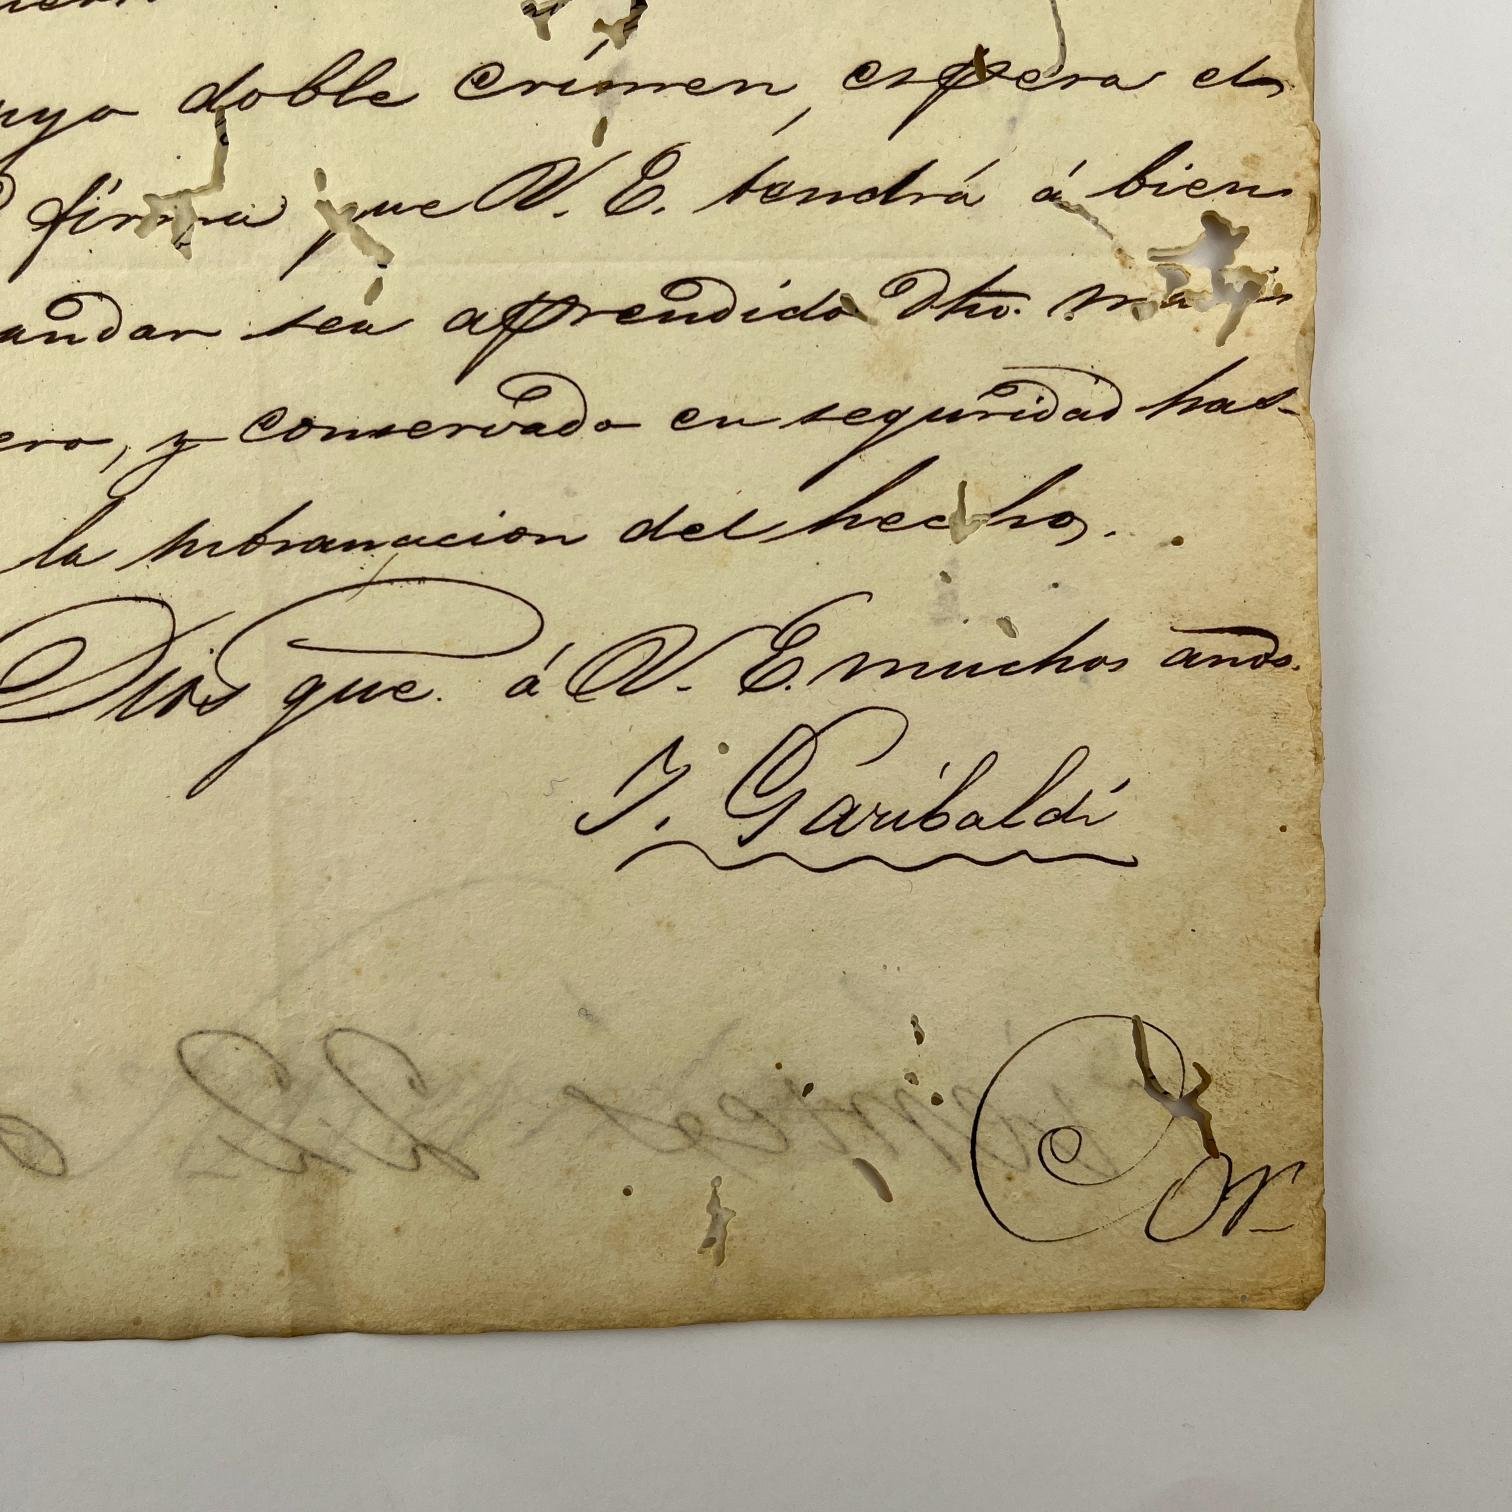 uyo doble crímen, espera el
firma que V. E. tendrá á bien
andar sea aprendido dho. mari
nero, y conservado en seguridad has-
la substanciacion del hecho.
Dios gue. á V. E. muchos años.
J. Garibaldi